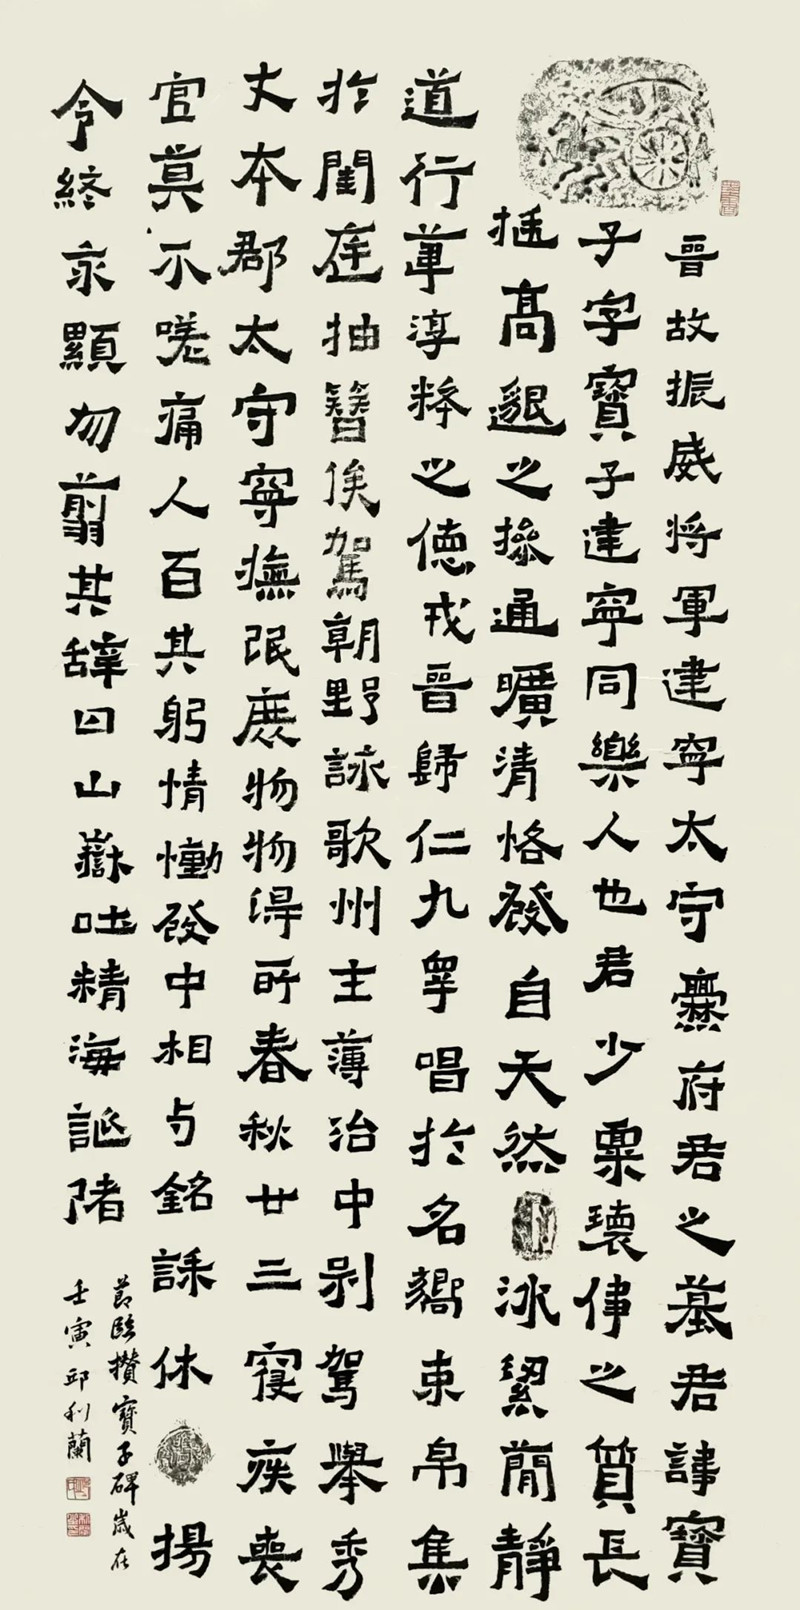 晉故振威將軍建寧太守爨府君之墓君諱寶
子字寶子建寧同樂人也君少稟瓌偉之質長
挺高邈之操通曠清恪發自天然冰絜簡靜
道行葦淳粹之德戎晉歸仁九皋唱於名嚮束帛集
於閨庭抽簪俟駕朝野詠歌州主薄治中別駕舉秀
才本郡太守寧撫氓庶物物得所春秋廿三寢疾喪
官莫不嗟痛人百其躬情慟發中相与銘誄休揚
令終永顯勿翦其辭曰山嶽吐精海誕陼
節臨攢寶子碑歲在
壬寅邱利蘭